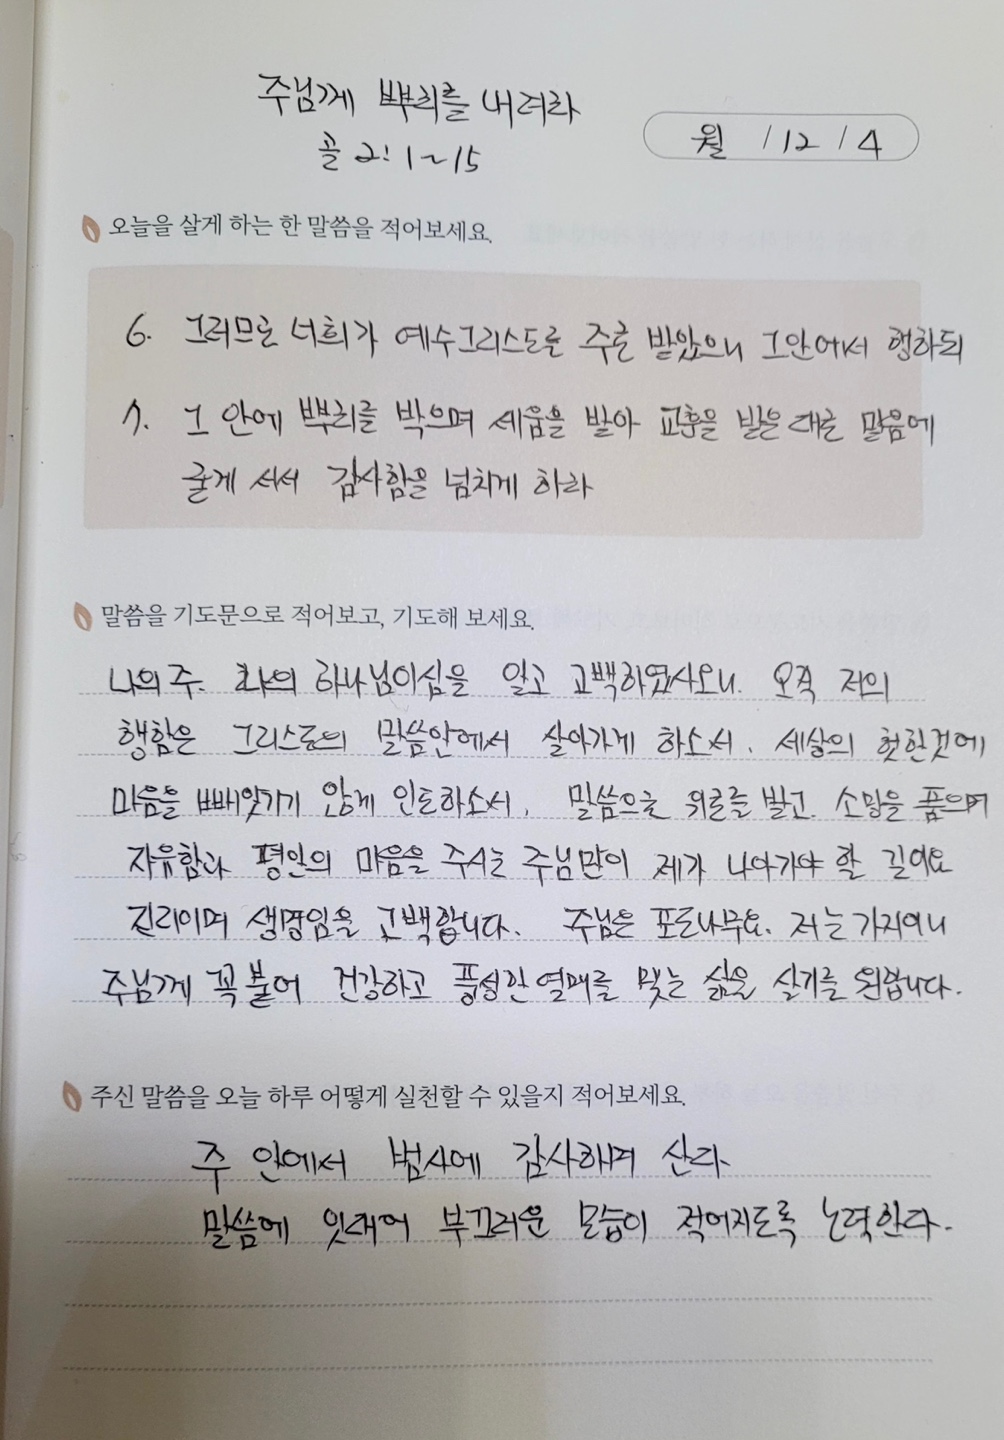 주님께 뿌리를 내려라
골 2:1~15
월 / 12 / 4
오늘을 살게 하는 한 말씀을 적어보세요.
6. 그러므로 너희가 예수그리스도를 주로 받았으니 그안에서 행하되
7. 그 안에 뿌리를 박으며 세움을 받아 교훈을 받은 대로 믿음에
굳게 서서 감사함을 넘치게 하라
말씀을 기도문으로 적어보고, 기도해 보세요.
나의 주. 나의 하나님이심을 알고 고백하였사오니. 오직 저의
행함은 그리스도의 말씀안에서 살아가게 하소서. 세상의 헛한것에
마음을 빼앗기지 않게 인도하소서. 말씀으로 위로를 받고. 소망을 품으며
자유함과 평안의 마음을 주시는 주님만이 제가 나아가야 할 길이요
진리이며 생명임을 고백합니다. 주님은 포도나무요. 저는 가지이니
주님께 꼭 붙어 건강하고 풍성한 열매를 맺는 삶을 살기를 원합니다.
주신 말씀을 오늘 하루 어떻게 실천할 수 있을지 적어보세요.
주 안에서 범사에 감사하며 산다
말씀에 잇대어 부끄러운 모습이 적어지도록 노력한다.